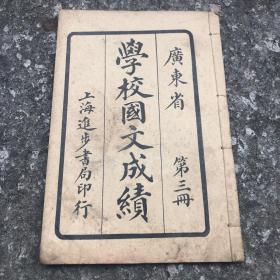 廣東省
第三冊
學校國文成績
上海進步書局印行